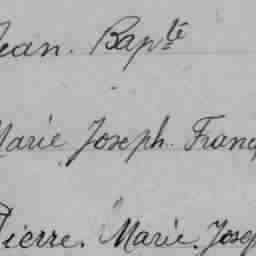 Jean. Bapte
Marie Joseph Franç
Pierre. Marie. Josep